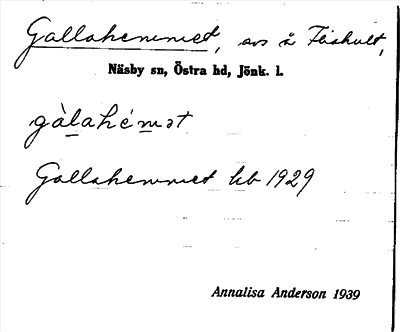 Gallahemmet, avs å Fiskult,
Näsby sn, Östra hd, Jönk. l.
gàlahémət
Gallahemmet hb 1929
Annalisa Anderson 1939